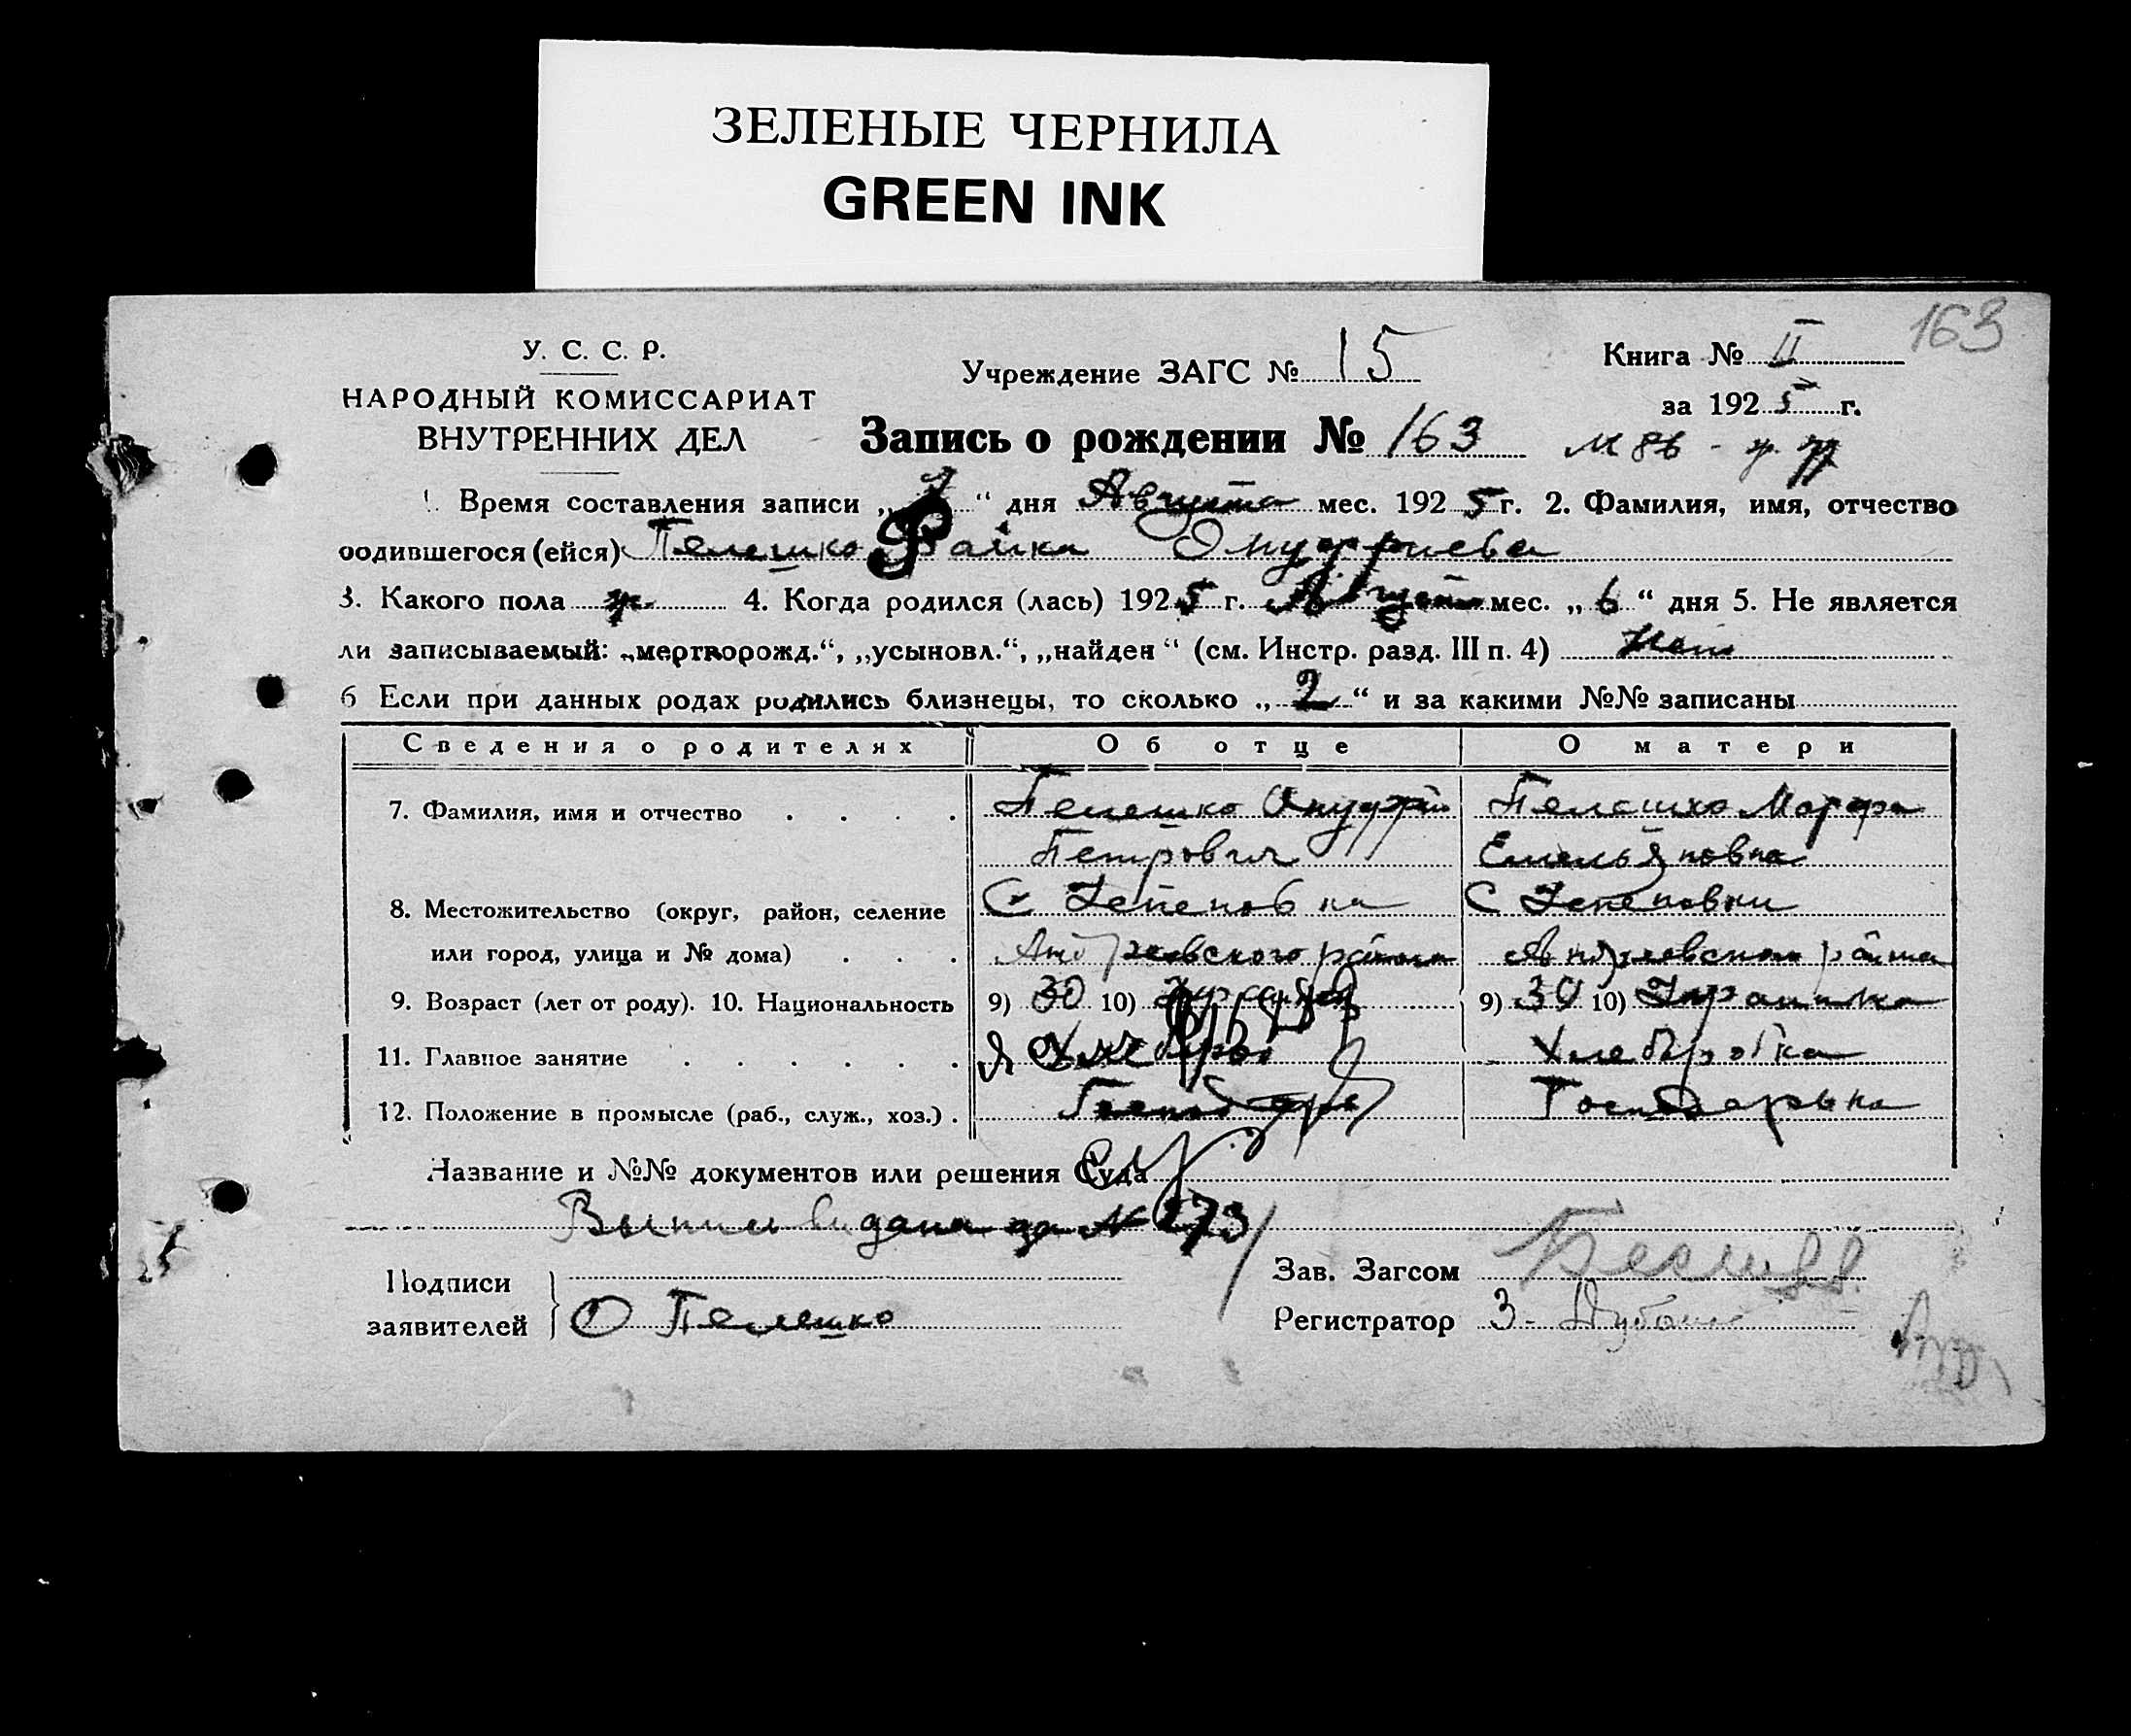 ЗЕЛЕНЫЕ ЧЕРНИЛА
GREEN INK
163
У. С. С. Р.
НАРОДНЫЙ КОМИССАРИАТ
ВНУТРЕННИХ ДЕЛ
Учреждение ЗАГС № 15
Книга № II
за 1925 г.
Запись о рождении № 163
1. Время составления записи „ “ дня Августа мес. 1925 г. 2. Фамилия, имя, отчество
родившегося (ейся) Пелешко Онуфриева
3. Какого пола 4. Когда родился (лась) 1925 г. Август мес. „6“ дня 5. Не является
ли записываемый: „мертворожд.“, „усыновл.“, „найден“ (см. Инстр. разд. III п. 4) Нет
6 Если при данных родах родились близнецы, то сколько „2“ и за какими №№ записаны
Сведения о родителях Об отце О матери
7. Фамилия, имя и отчество . . . . Пелешко Онуфрий Пелешко Марфа
Петрович Емельяновна
8. Местожительство (округ, район, селение С С
или город, улица и № дома) . . . района района
9. Возраст (лет от роду). 10. Национальность 9) 30 10) 9) 30 10)
11. Главное занятие . . . . . . Хлебороб Хлеборобка
12. Положение в промысле (раб., служ., хоз.) . Господарь Господарька
Название и №№ документов или решения Суда
за № 273
Подписи
заявителей О Пелешко
Зав. Загсом
Регистратор З.